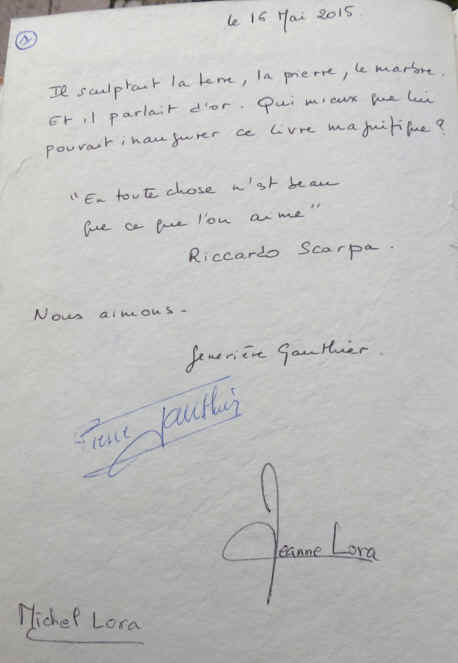 le 16 Mai 2015.
Il sculptait la terre, la pierre, le marbre.
Et il parlait d'or. Qui mieux que lui
pouvait inaugurer ce livre magnifique?
"En toute chose n'est beau
que ce que l'on aime"
Riccardo Scarpa.
Nous aimons.
Geneviève Gauthier.
Pierre Gauthier
Jeanne Lora
Michel Lora